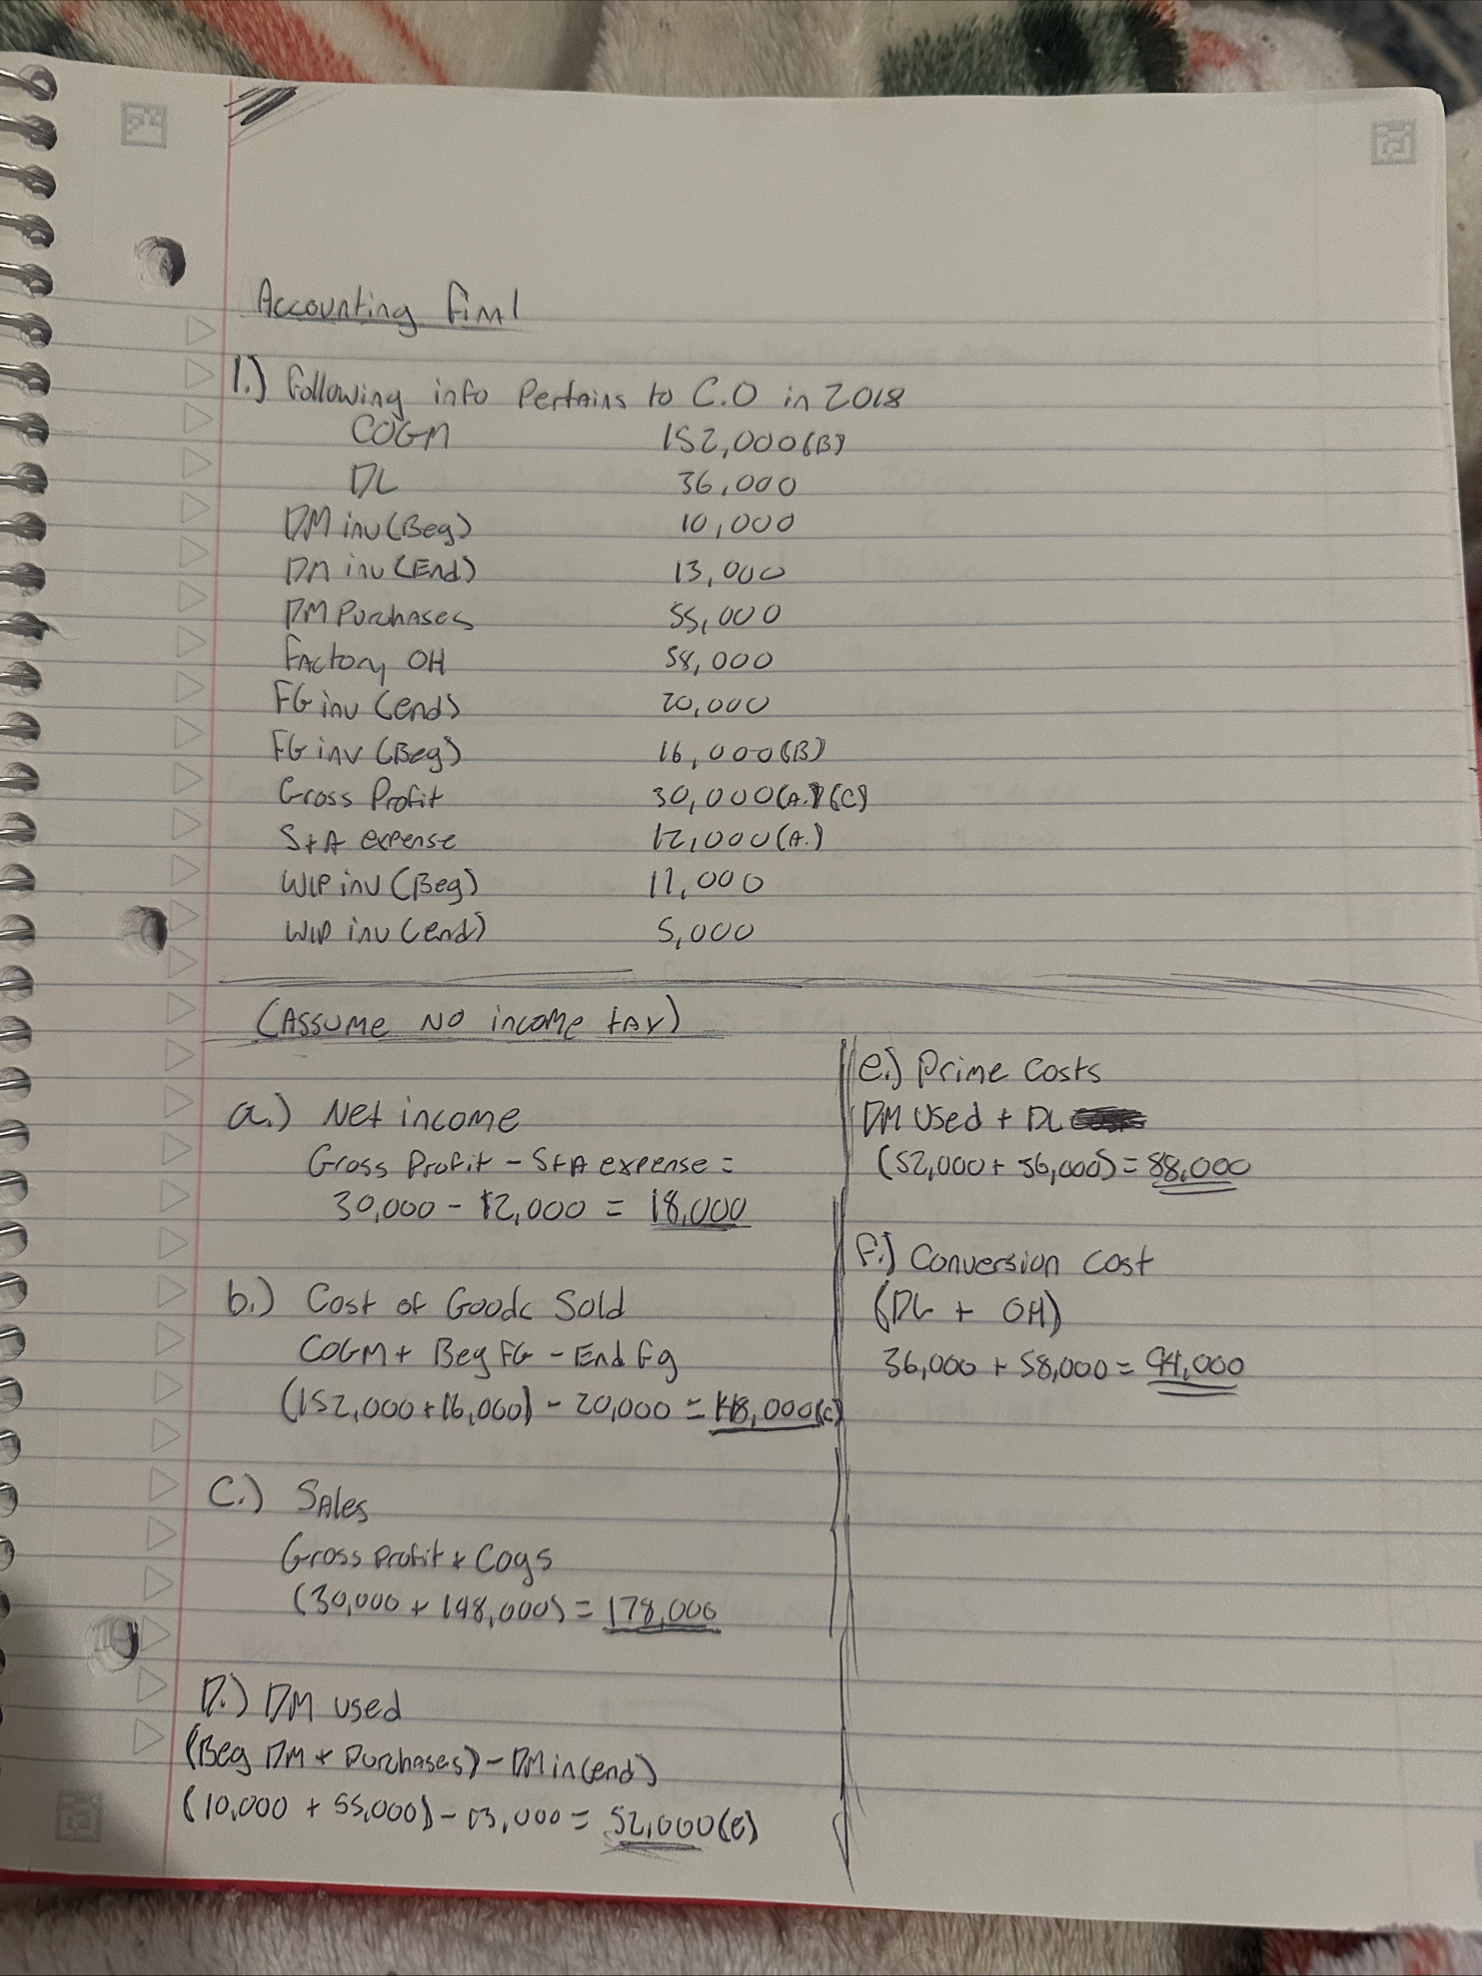 Accounting Final
1.) Following info Pertains to C.O in 2018
COGM 152,000(B)
DL 36,000
DM inv(Beg) 10,000
DM inv(End) 13,000
DM Purchases 55,000
Factory OH 58,000
FG inv (end) 20,000
FG inv (Beg) 16,000(B)
Gross Profit 30,000(A.)(C)
S+A expense 12,000(A.)
WIP inv (Beg) 11,000
WIP inv (end) 5,000
(Assume NO income tax)
a.) Net income
Gross Profit - S+A expense =
30,000 - 12,000 = 18,000
b.) Cost of Goods Sold
COGM + Beg FG - End Fg
(152,000+16,000) - 20,000 = 148,000(C)
C.) Sales
Gross Profit + Cogs
(30,000 + 148,000) = 178,000
D.) DM used
(Beg DM + Purchases) - DM in(end)
(10,000 + 55,000) - 13,000 = 52,000(e)
e.) Prime Costs
DM Used + DL
(52,000 + 36,000) = 88,000
F.) Conversion Cost
(DL + OH)
36,000 + 58,000 = 94,000